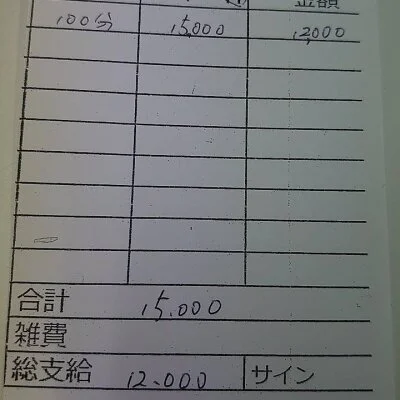 金額
100分 15,000 12,000
合計 15.000
雑費
総支給 12.000 サイン